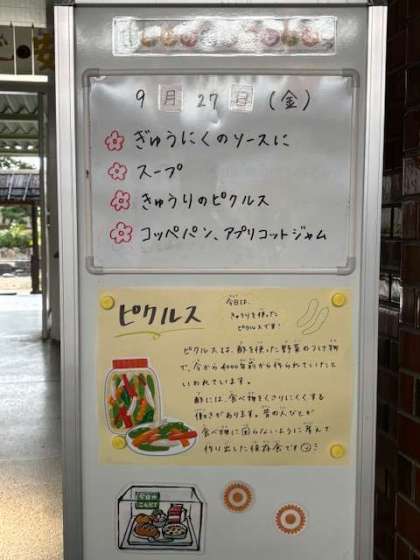 9月27日(金)
ぎゅうにくのソースに
スープ
きゅうりのピクルス
コッペパン、アプリコットジャム
ピクルス
今日は、
きゅうりを使った
ピクルスです!
ピクルスは、酢を使った野菜のつけ物
で、今から4000年前から作られていたと
いわれています。
酢には、食べ物をくさりにくくする
働きがあります。昔の人びとが
食べ物に困らないように考えて
作り出した保存食です
今日の
こんだて